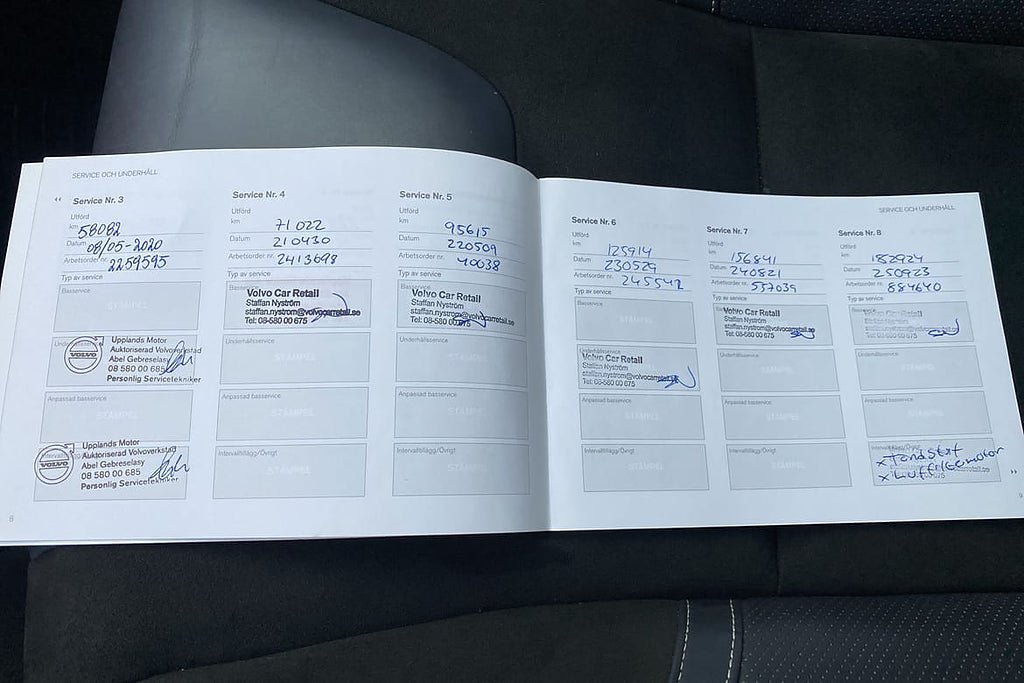 SERVICE OCH UNDERHÅLL
‹‹ Service Nr. 3
Utförd
km 58082
Datum 08/05-2020
Arbetsorder nr. 2259595
Typ av service
Basservice
STÄMPEL
Upplands Motor
Auktoriserad Volvoverkstad
VOLVO
Abel Gebreselasy
08 580 00 685
Personlig Servicetekniker
Anpassad basservice
STÄMPEL
Intervalltillägg/Övrigt
Upplands Motor
Auktoriserad Volvoverkstad
VOLVO
Abel Gebreselasy
08 580 00 685
Personlig Servicetekniker
8
Service Nr. 4
Utförd
km 71022
Datum 210430
Arbetsorder nr. 2413698
Typ av service
Basservice
Volvo Car Retail
Staffan Nyström
staffan.nystrom@volvocarretail.se
Tel: 08-580 00 675
Underhållsservice
STÄMPEL
Anpassad basservice
STÄMPEL
Intervalltillägg/Övrigt
STÄMPEL
Service Nr. 5
Utförd
km 95615
Datum 220509
Arbetsorder nr. 40038
Typ av service
Basservice
Volvo Car Retail
Staffan Nyström
staffan.nystrom@volvocarretail.se
Tel: 08-580 00 675
Underhållsservice
STÄMPEL
Anpassad basservice
STÄMPEL
Intervalltillägg/Övrigt
STÄMPEL
SERVICE OCH UNDERHÅLL
Service Nr. 6
Utförd
km 125914
Datum 230529
Arbetsorder nr. 245542
Typ av service
Basservice
STÄMPEL
Underhållsservice
Volvo Car Retail
Staffan Nyström
staffan.nystrom@volvocarretail.se
Tel: 08-580 00 675
Anpassad basservice
STÄMPEL
Intervalltillägg/Övrigt
STÄMPEL
Service Nr. 7
Utförd
km 156841
Datum 240821
Arbetsorder nr. 557039
Typ av service
Volvo Car Retail
Staffan Nyström
staffan.nystrom@volvocarretail.se
Tel: 08-580 00 675
Underhållsservice
STÄMPEL
Anpassad basservice
STÄMPEL
Intervalltillägg/Övrigt
STÄMPEL
Service Nr. 8
Utförd
km 182924
Datum 250923
Arbetsorder nr. 884640
Typ av service
Volvo Car Retail
Staffan Nyström
staffan.nystrom@volvocarretail.se
Tel: 08-580 00 675
Underhållsservice
STÄMPEL
Anpassad basservice
STÄMPEL
Intervalltillägg/Övrigt
x Tändstift
x Luftfilter motor
››
9